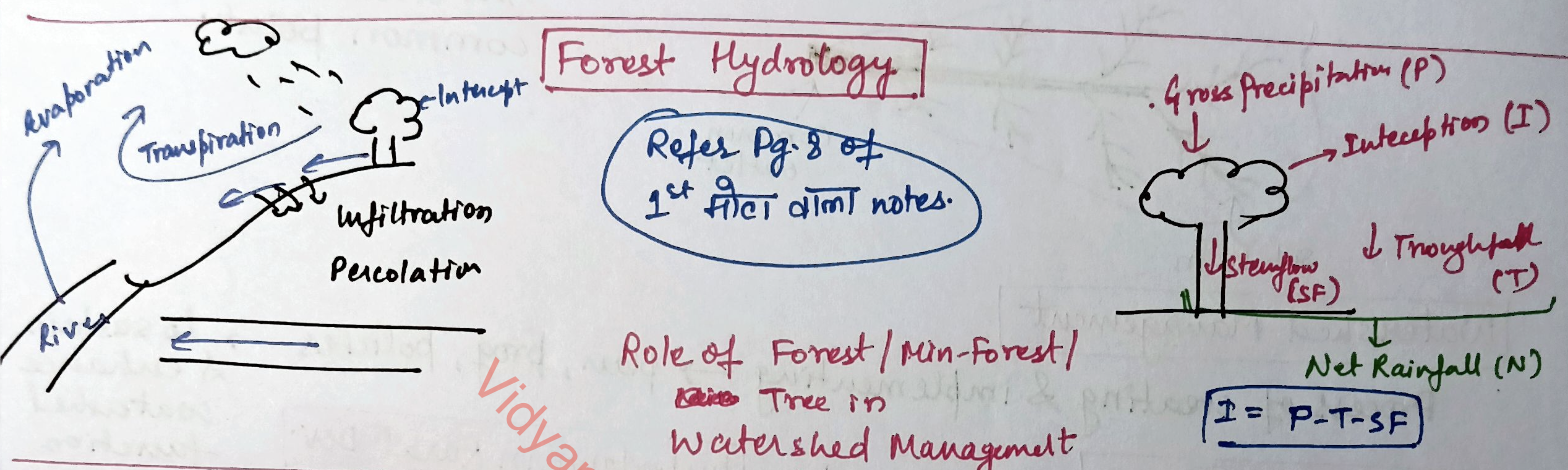 Forest Hydrology
Evaporation
Transpiration
Intercept
Infiltration
Percolation
River
Refer Pg. 8 of
1st मोटा वाला notes.
Role of Forest/Min-Forest/
Tree in
Watershed Management
Gross Precipitation (P)
Inteception (I)
Stemflow
(SF)
Troughfall
(T)
Net Rainfall (N)
I = P-T-SF
Vidya